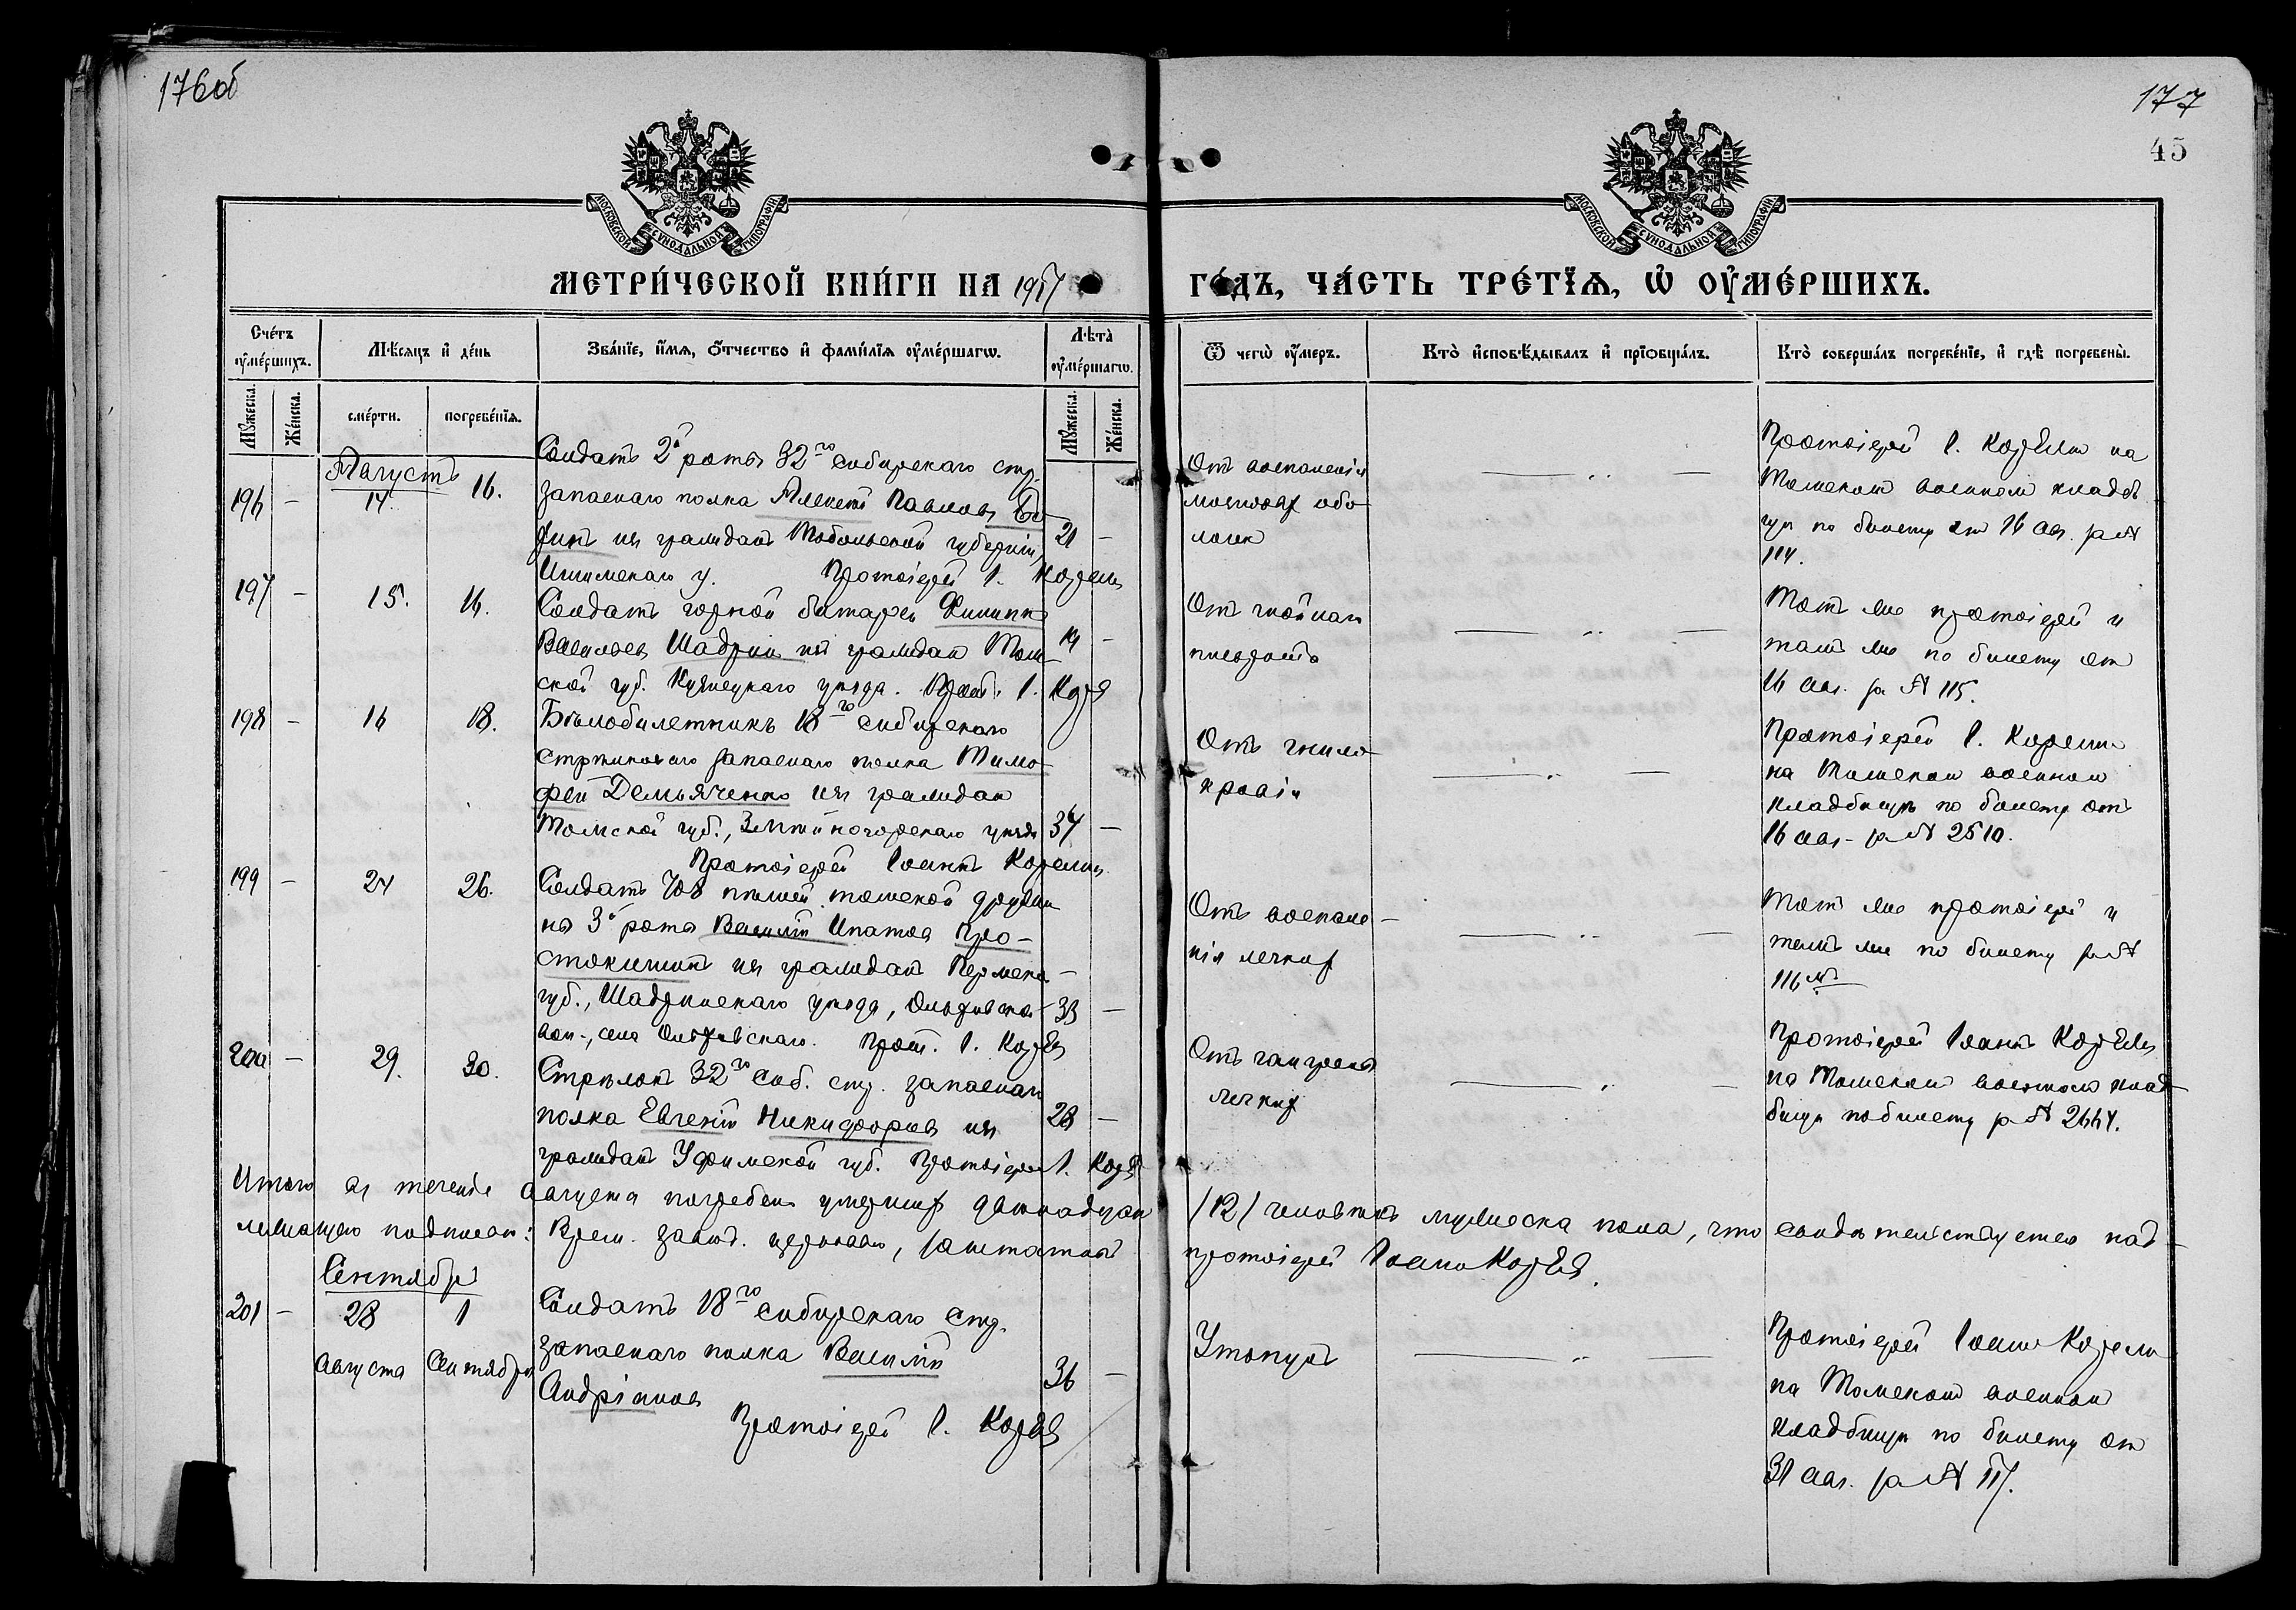 176 об
177
45
МОСКОВСКОЙ СѴНОДАЛЬНОЙ ТИПОГРАФІИ
МОСКОВСКОЙ СѴНОДАЛЬНОЙ ТИПОГРАФІИ
МЕТРИ́ЧЕСКОЙ КНИ́ГИ НА 1917
ГО́ДЪ, ЧА́СТЬ ТРЕ́ТІѦ, Ѡ ОУМЕ́РШИХЪ.
Сче́тъ оуме́ршихъ.
Мѣ́сѧцъ и де́нь
Зва́нїе, и́мѧ, о́тчество и фами́лїѧ оуме́ршагѡ.
Лѣта̀ оуме́ршагѡ.
Ѿ чегѡ̀ оу́меръ.
Кто̀ исповѣ́дывалъ и прїѡбща́лъ.
Кто̀ соверша́лъ погребе́нїе, и гдѣ̀ погребены̀.
Мꙋ́жеска. Же́нска.
сме́рти. погребе́нїѧ.
Мꙋ́жеска. Же́нска.
Августъ
196 – 14. 16.
Солдатъ 2й роты 32го сибирскаго стр.
запаснаго полка Алексѣй Павловъ
из граждан Тобольской губерніи,
Ишимскаго у. Протоіерей І. Корелинъ
21 –
От воспаленія
мозговых обо
лочек
Протоіерей І. Корелин на
Томском военном кладб
ищѣ по билету от 16 авг. за №
114.
197 – 15. 16.
Солдатъ горной батареи Филиппъ
Васильевъ Шадрин из граждан Том
ской губ. Кузнецкаго уѣзда. Прот. І.
19 –
От гнойнаго
плеврита
Тот же протоіерей и
там же по билету от
16 авг. за № 115.
198 – 16 18.
Бѣлобилетникъ 18го сибирскаго
стрѣлковаго запаснаго полка Тимо
фей Демьяченко из граждан
Томской губ., Змѣиногорскаго уѣзда
Протоіерей Іоаннъ Корелинъ
37 –
Отъ гнило
кровія
Протоіерей І. Корелин
на Томском военном
кладбищѣ по билету от
16 авг. за № 2510.
199 – 24 26.
Солдатъ 708 пѣшей томской дружи
ны 3й роты Василій Ипатов Про-
стокишинъ из граждан Пермской
губ., Шадринскаго уѣзда, Ольховской
вол., села Ольховскаго. Прот. І.
33 –
Отъ воспале-
нія легких
Тот же протоіерей и
там же по билету за №
116
200 – 29. 30.
Стрѣлокъ 32го сиб. стр. запаснаго
полка Евгеній Никифоровъ из
граждан Уфимской губ. Протоіерей І.
28 –
Отъ гангрены
легких
Протоіерей Іоаннъ Корелинъ
на Томском военном клад
бищѣ по билету за № 2664.
Итого въ теченіе августа погребено умерших двѣнадцать /12/ человѣкъ мужеска пола, что свидѣтельствуется над
лежащею подписью: Врем. завѣд. церковью, заштатный протоіерей Іоаннъ
Сентябрь
201 – 28 1
августа Сентября
Солдатъ 18го сибирскаго стр.
запаснаго полка Василій
Андріановъ
Протоіерей І.
36 –
Утонулъ
Протоіерей Іоанн Корелин
на Томском военном
кладбищѣ по билету от
31 авг. за № 117.